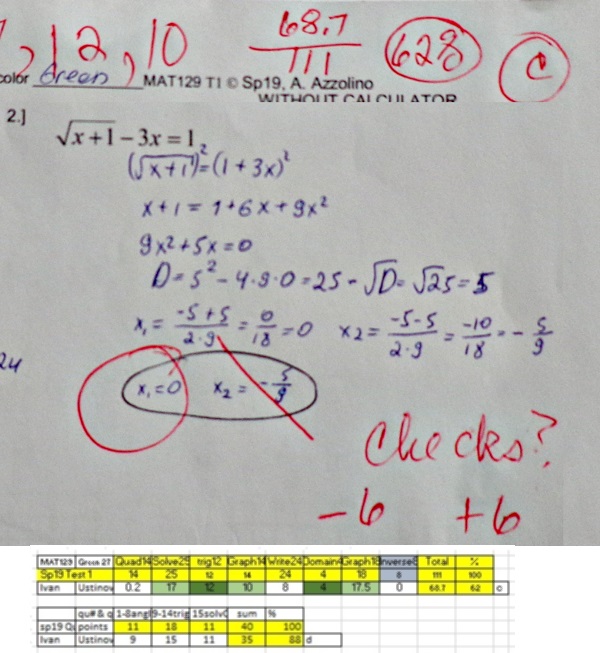 , 12, 10
68.7
111
628
C
color Green MAT129 T1 © Sp19, A. Azzolino
WITHOUT CALCULATOR
2.]
√x+1 − 3x = 1
(√x+1)² = (1 + 3x)²
x+1 = 1+6x+9x²
9x²+5x=0
D=5²-4·9·0=25 - √D= √25=5
x₁ = -5+5 / 2·9 = 0/18 = 0 x₂ = -5-5 / 2·9 = -10/18 = - 5/9
24
x₁=0 x₂ = -5/9
Checks?
-6 +6
MAT129 Green 27 Quad14 Solve25 trig12 Graph14 Write24 Domain4 Graph18 Inverse8 Total %
Sp19 Test 1 14 25 12 14 24 4 18 8 111 100
Ivan Ustinov 0.2 17 12 10 8 4 17.5 0 68.7 62 c
qu# & q 1-8angl 9-14trig 15solv sum %
sp19 Qu points 11 18 11 40 100
Ivan Ustinov 9 15 11 35 88 d